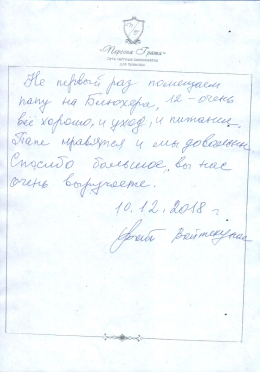 «Персона Грата»
СЕТЬ ЧАСТНЫХ ПАНСИОНАТОВ
ДЛЯ ПОЖИЛЫХ
Не первый раз помещаем
папу на Блюхера, 12 – очень
всё хорошо, и уход, и питание.
Папе нравятся и мы довольны
Спасибо большое, вы нас
очень выручаете.
10.12.2018 г.